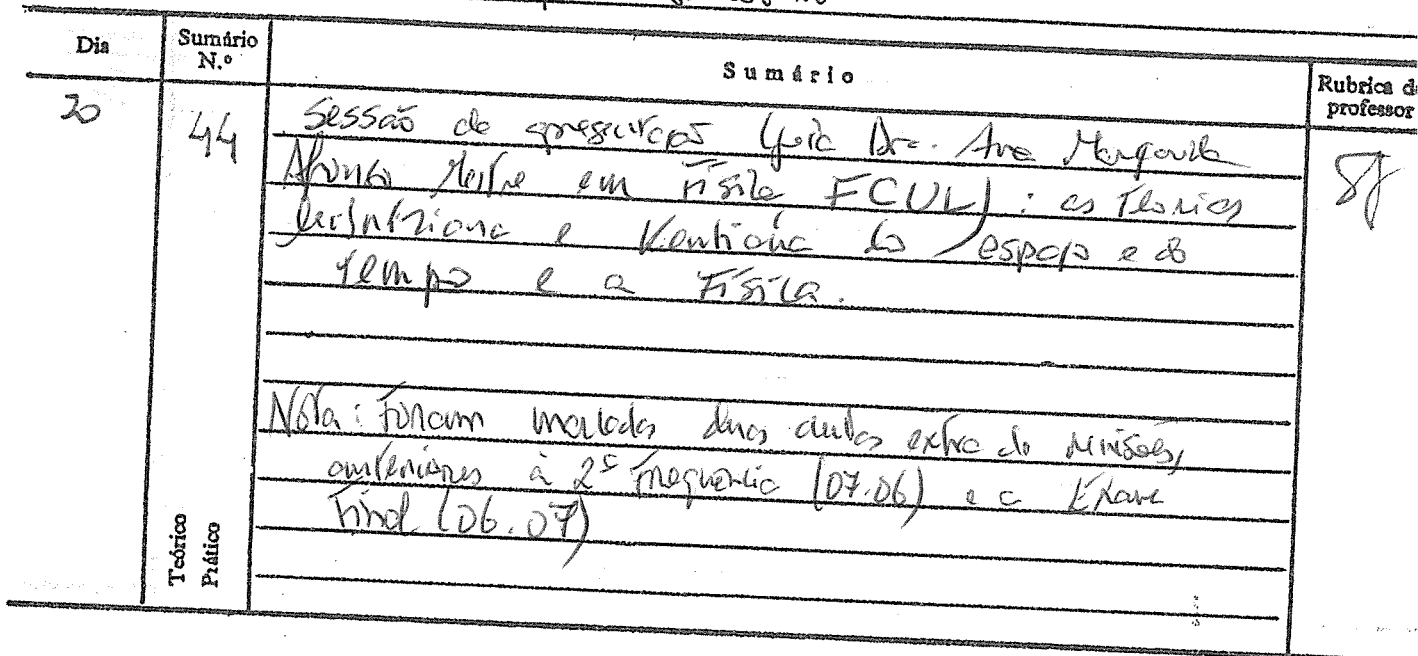 Dia
Sumário N.º
Sumário
Rubrica d
professor
20
44
Sessão de apresentação (pela Dra. Ana Margarida
Afonso, Mestre em Física FCUL) : as Teorias
e Kantiana do espaço e do
Tempo e a Física.
Nota: Foram marcadas duas aulas extra de revisões,
anteriores à 2ª Frequência (07.06) e a Exame
Final (06.07)
Teórico
Prático